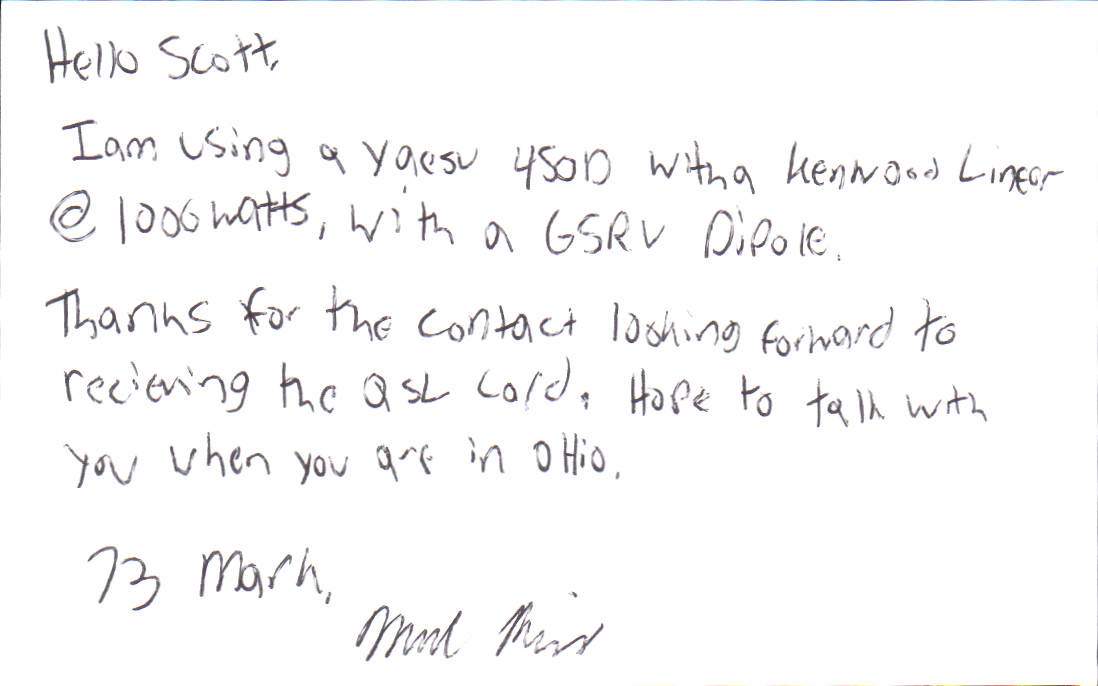 Hello Scott,
I am using a Yaesu 450D with a Kenwood Linear
@ 1000 watts, with a G5RV Dipole.
Thanks for the contact looking forward to
recieving the QSL card. Hope to talk with
you when you are in OHio.
73 Mark,
Mark